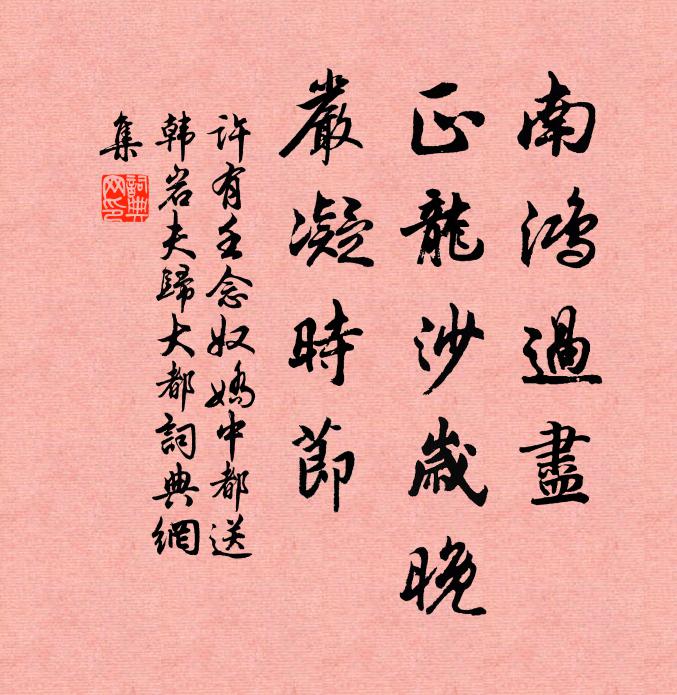 南鴻過盡
正龍沙歲晚
嚴凝時節
許有壬念奴嬌中都送
韓岩夫歸大都詞典網
集
詞典
网印